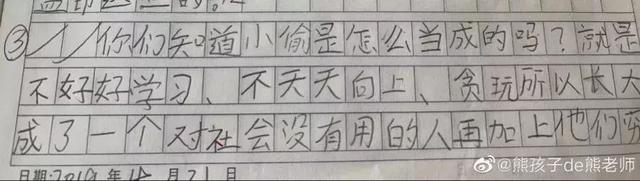 ③你们知道小偷是怎么当成的吗？就是
不好好学习、不天天向上、贪玩所以长大
成了一个对社会没有用的人再加上他们
日期:2019年 月21日
@熊孩子de熊老师